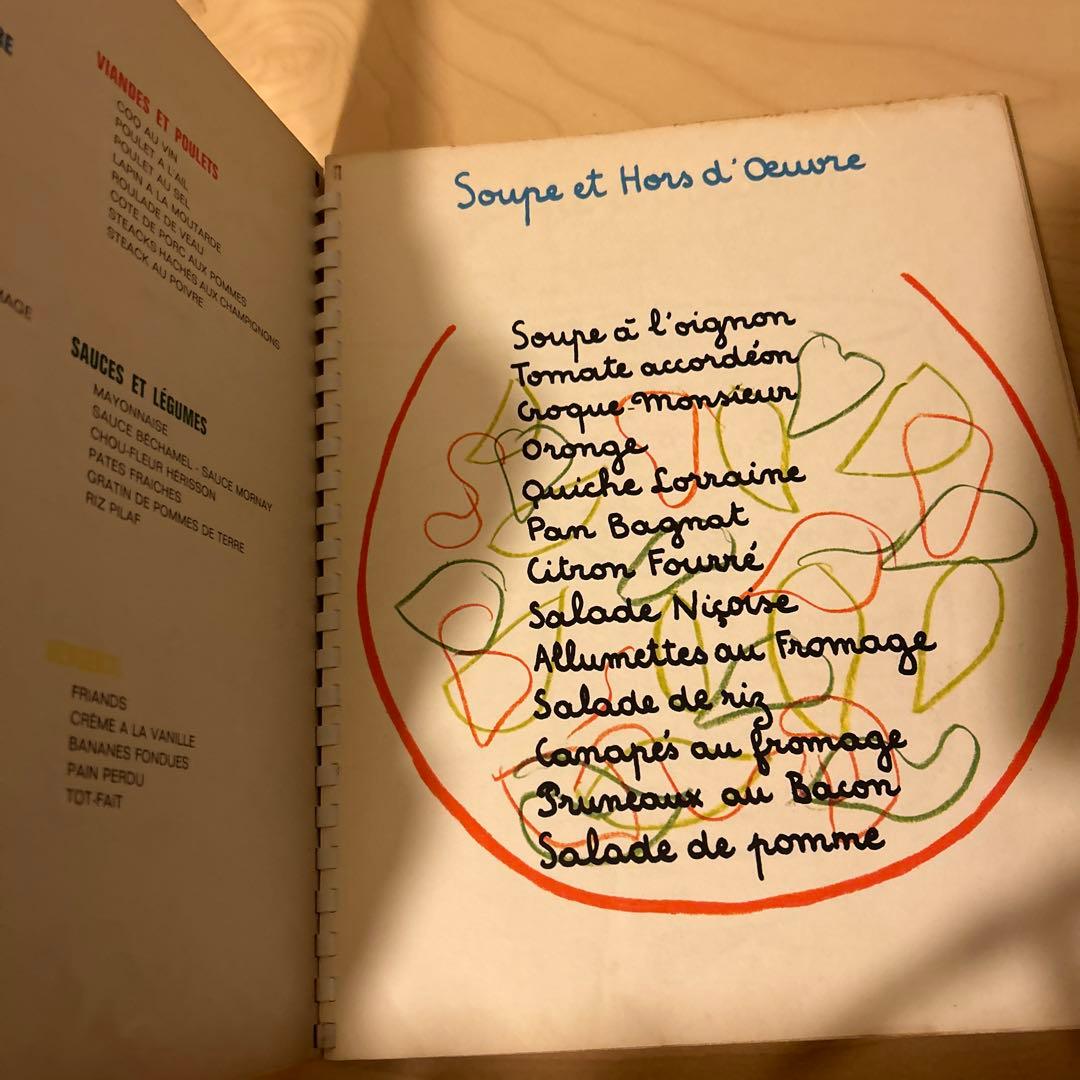 VIANDES ET POULETS
COQ AU VIN
POULET A L'AIL
POULET AU SEL
LAPIN A LA MOUTARDE
ROULADE DE VEAU
COTE DE PORC AUX POMMES
STEACKS HACHÉS AUX CHAMPIGNONS
STEACK AU POIVRE
SAUCES ET LÉGUMES
MAYONNAISE
SAUCE BÉCHAMEL - SAUCE MORNAY
CHOU-FLEUR HÉRISSON
PATES FRAICHES
GRATIN DE POMMES DE TERRE
RIZ PILAF
FRIANDS
CRÈME A LA VANILLE
BANANES FONDUES
PAIN PERDU
TOT-FAIT
Soupe et Hors d'Oeuvre
Soupe à l'oignon
Tomate accordéon
Croque-Monsieur
Oronge
Quiche Lorraine
Pan Bagnat
Citron Fourré
Salade Niçoise
Allumettes au Fromage
Salade de riz
Canapés au fromage
Pruneaux au Bacon
Salade de pomme